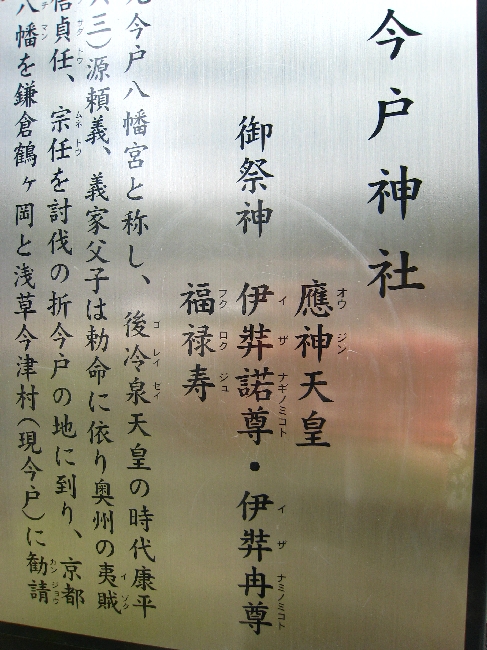 今戸神社
御祭神
應神天皇
伊弉諾尊・伊弉冉尊
福禄寿
今戸八幡宮と称し、後冷泉天皇の時代康平
三）源頼義、義家父子は勅命に依り奥州の夷賊
貞任、宗任を討伐の折今戸の地に到り、京都
八幡を鎌倉鶴ヶ岡と浅草今津村（現今戸）に勧請